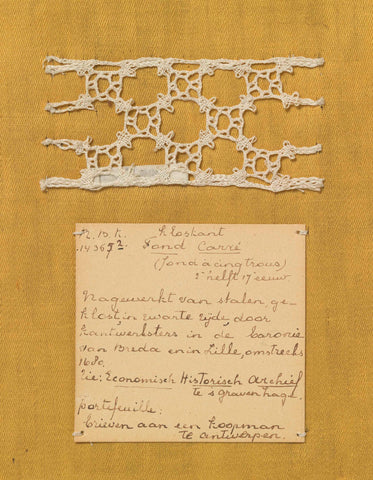 Kloskant
1436
Fond Carré
(fond à cinq trous)
2e helft 17e eeuw.
Nagewerkt van stalen ge-
klost in zwarte zijde, door
kantwerksters in de baronie
van Breda en in Lille, omstreeks
1680.
Zie: Economisch Historisch Archief
te s'gravenhage.
portefeuille:
brieven aan een koopman
te antwerpen.